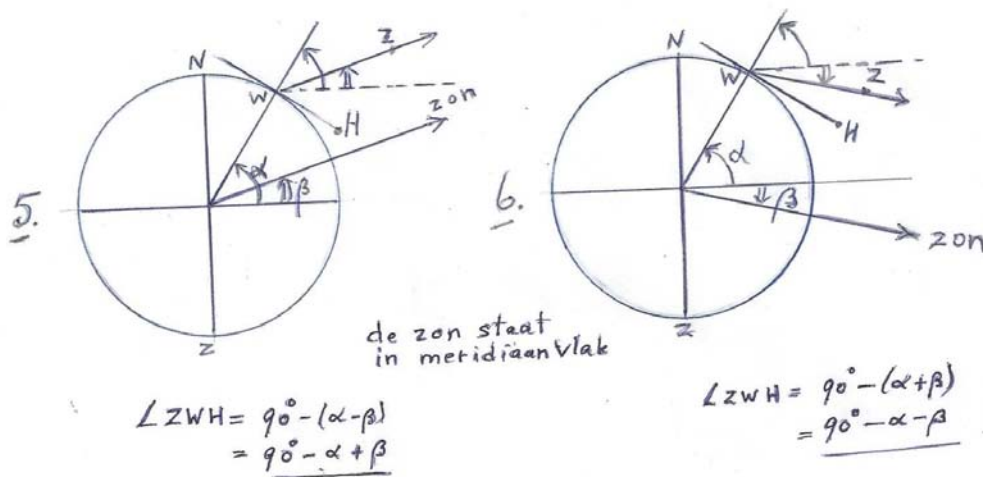 5.
N
W
Z
H
zon
α
β
Z
6.
N
W
Z
H
α
β
zon
Z
de zon staat
in meridiaanvlak
∠ZWH = 90° - (α - β)
= 90° - α + β
∠ZWH = 90° - (α + β)
= 90° - α - β